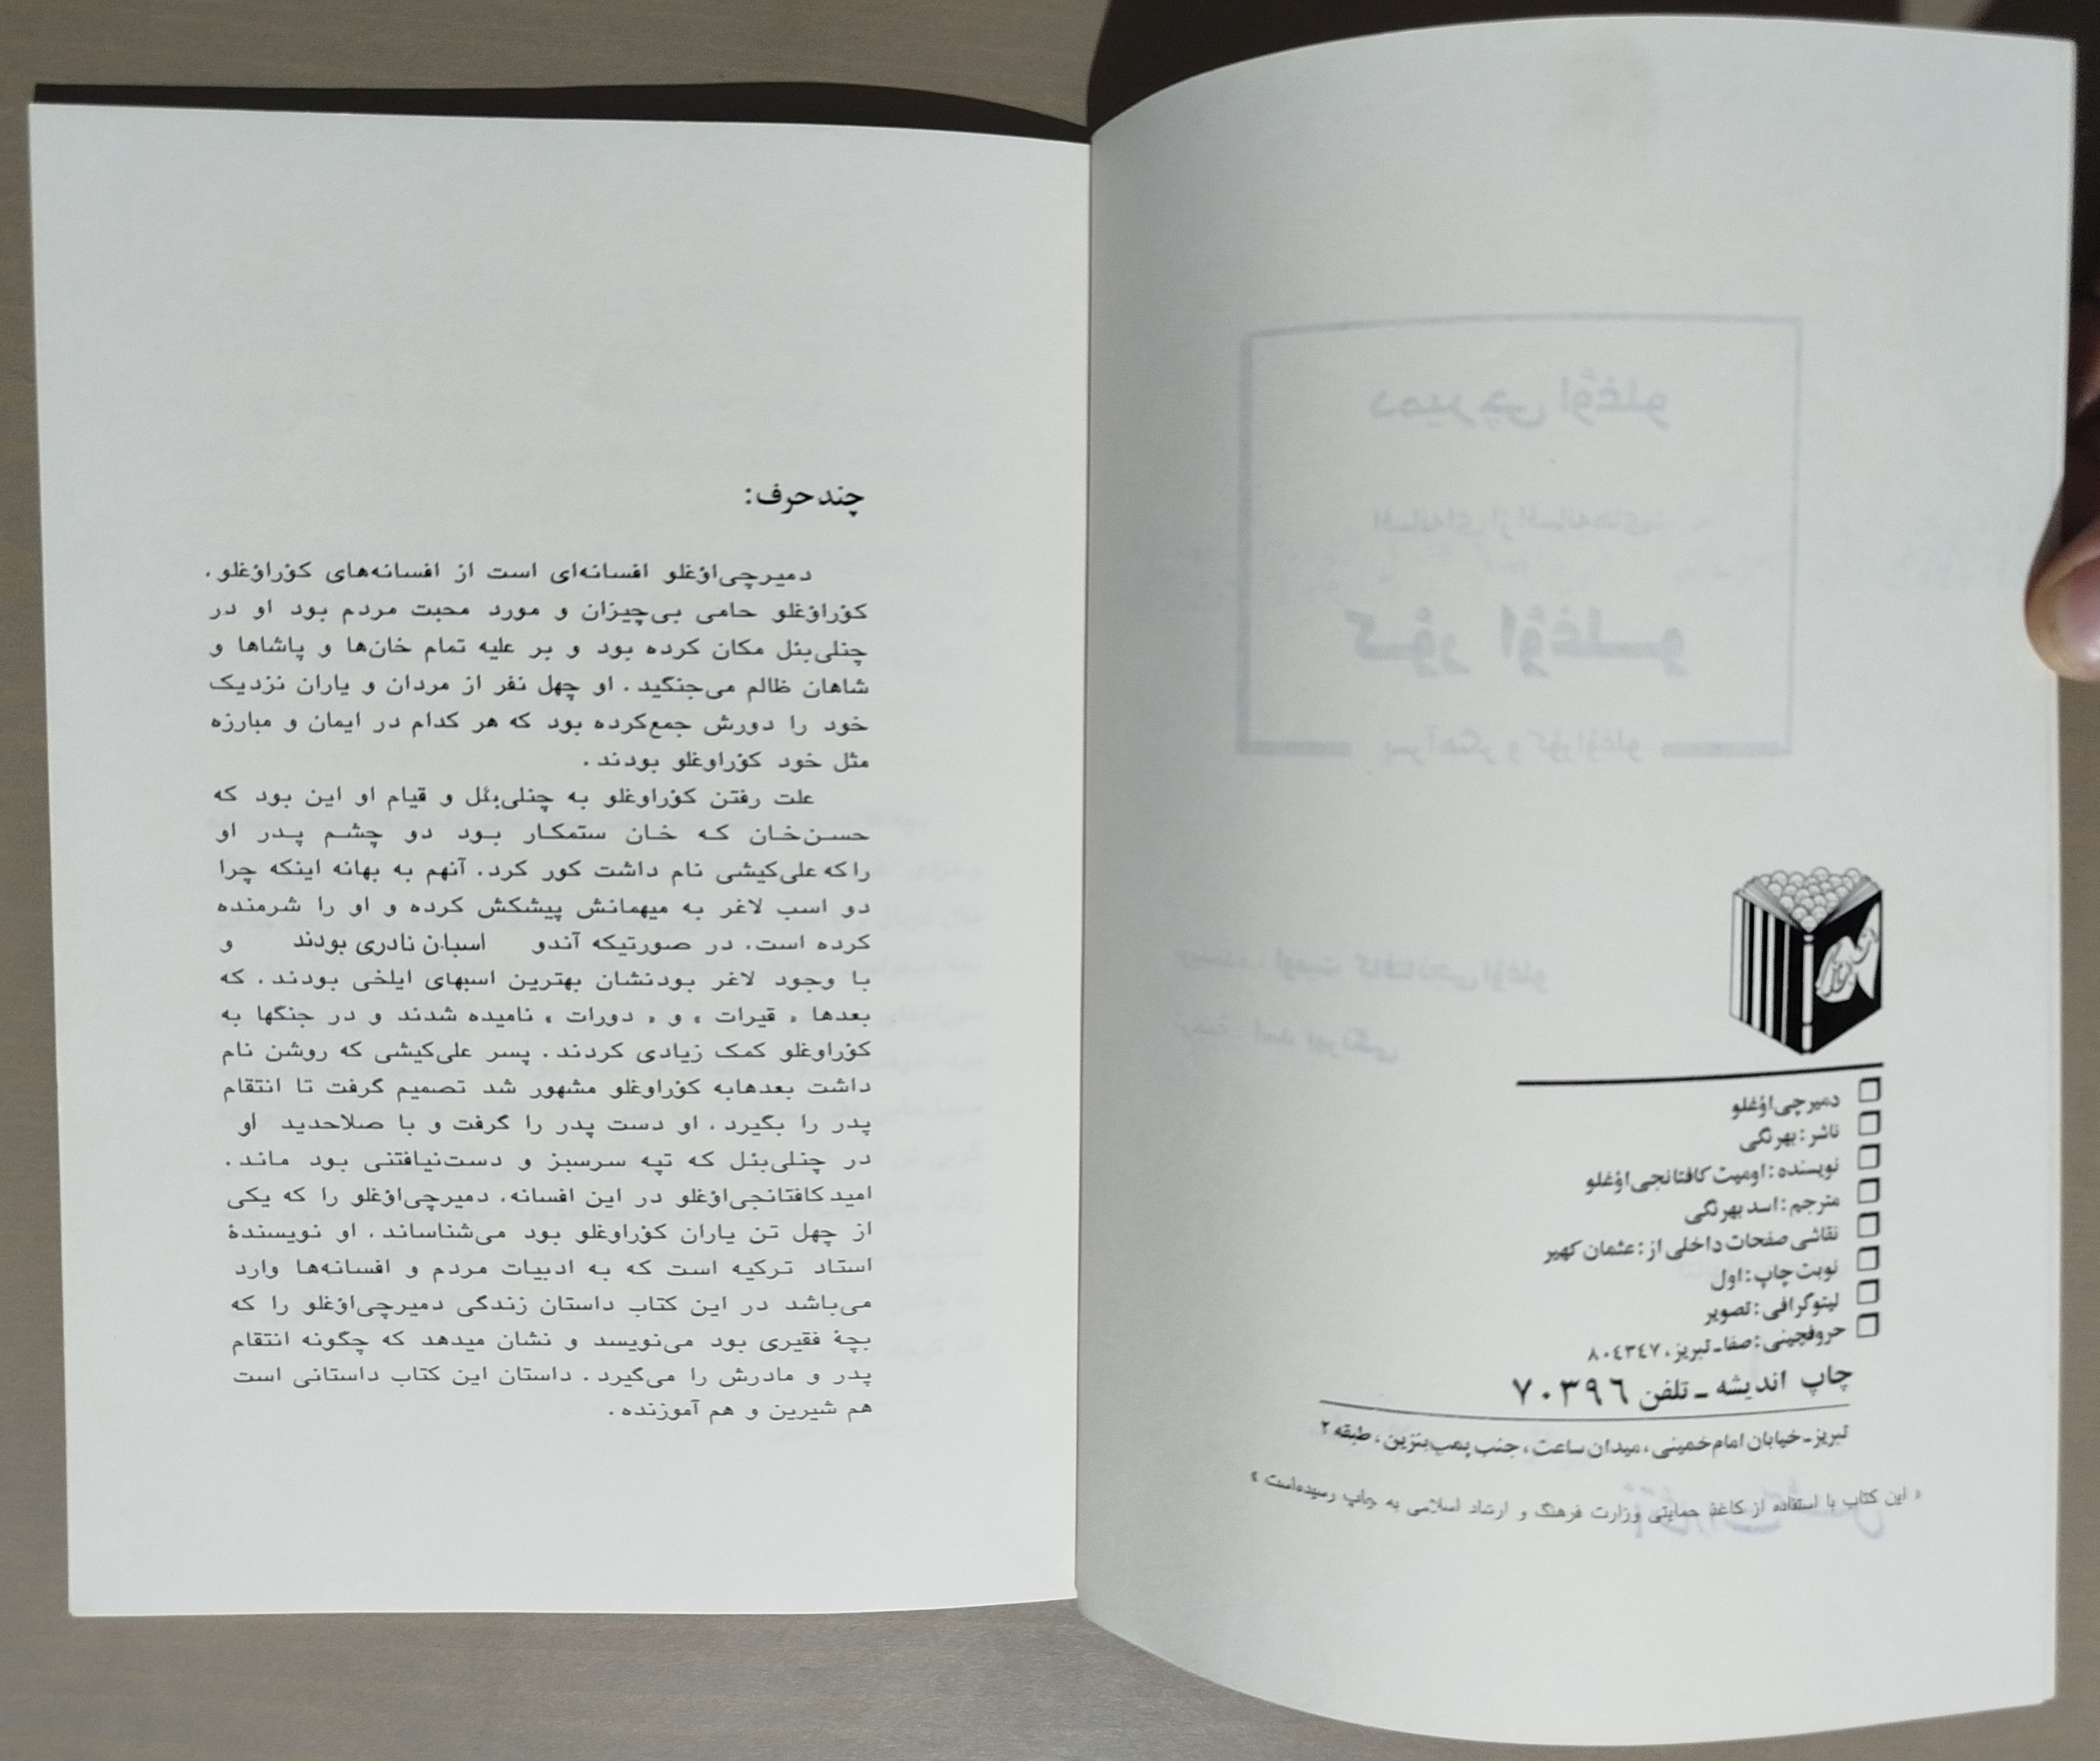 دمیرچی‌اؤغلو
ناشر: بهرنگی
نویسنده: اومیت کافتانجی‌اؤغلو
مترجم: اسد بهرنگی
نقاشی صفحات داخلی از: عثمان کهیر
نوبت چاپ: اول
لیتوگرافی: تصویر
حروفچینی: صفا ـ تبریز، ۸۰۴۳۴۷
چاپ اندیشه ـ تلفن ۷۰۳۹٦
تبریز ـ خیابان امام‌خمینی، میدان ساعت، جنب پمپ‌بنزین، طبقه ۲
« این کتاب با استفاده از کاغذ حمایتی وزارت فرهنگ و ارشاد اسلامی به چاپ رسیده‌است »
چند حرف:
دمیرچی‌اؤغلو افسانه‌ای است از افسانه‌های کؤراؤغلو.
کؤراؤغلو حامی بی‌چیزان و مورد محبت مردم بود او در
چنلی‌بئل مکان کرده بود و بر علیه تمام خان‌ها و پاشاها و
شاهان ظالم می‌جنگید. او چهل نفر از مردان و یاران نزدیک
خود را دورش جمع‌کرده بود که هر کدام در ایمان و مبارزه
مثل خود کؤراوغلو بودند.
علت رفتن کؤراوغلو به چنلی‌بئل و قیام او این بود که
حسن‌خان که خان ستمکار بود دو چشم پدر او
را که علی‌کیشی نام داشت کور کرد. آنهم به بهانه اینکه چرا
دو اسب لاغر به میهمانش پیشکش کرده و او را شرمنده
کرده است. در صورتیکه آندو اسبان نادری بودند و
با وجود لاغر بودنشان بهترین اسبهای ایلخی بودند. که
بعدها « قیرات » و « دورات » نامیده شدند و در جنگها به
کؤراوغلو کمک زیادی کردند. پسر علی‌کیشی که روشن نام
داشت بعدهابه کؤراوغلو مشهور شد تصمیم گرفت تا انتقام
پدر را بگیرد. او دست پدر را گرفت و با صلاحدید او
در چنلی‌بئل که تپه سرسبز و دست‌نیافتنی بود ماند.
امید کافتانجی‌اؤغلو در این افسانه، دمیرچی‌اؤغلو را که یکی
از چهل تن یاران کؤراوغلو بود می‌شناساند. او نویسندهٔ
استاد ترکیه است که به ادبیات مردم و افسانه‌ها وارد
می‌باشد در این کتاب داستان زندگی دمیرچی‌اؤغلو را که
بچهٔ فقیری بود می‌نویسد و نشان میدهد که چگونه انتقام
پدر و مادرش را می‌گیرد. داستان این کتاب داستانی است
هم شیرین و هم آموزنده.